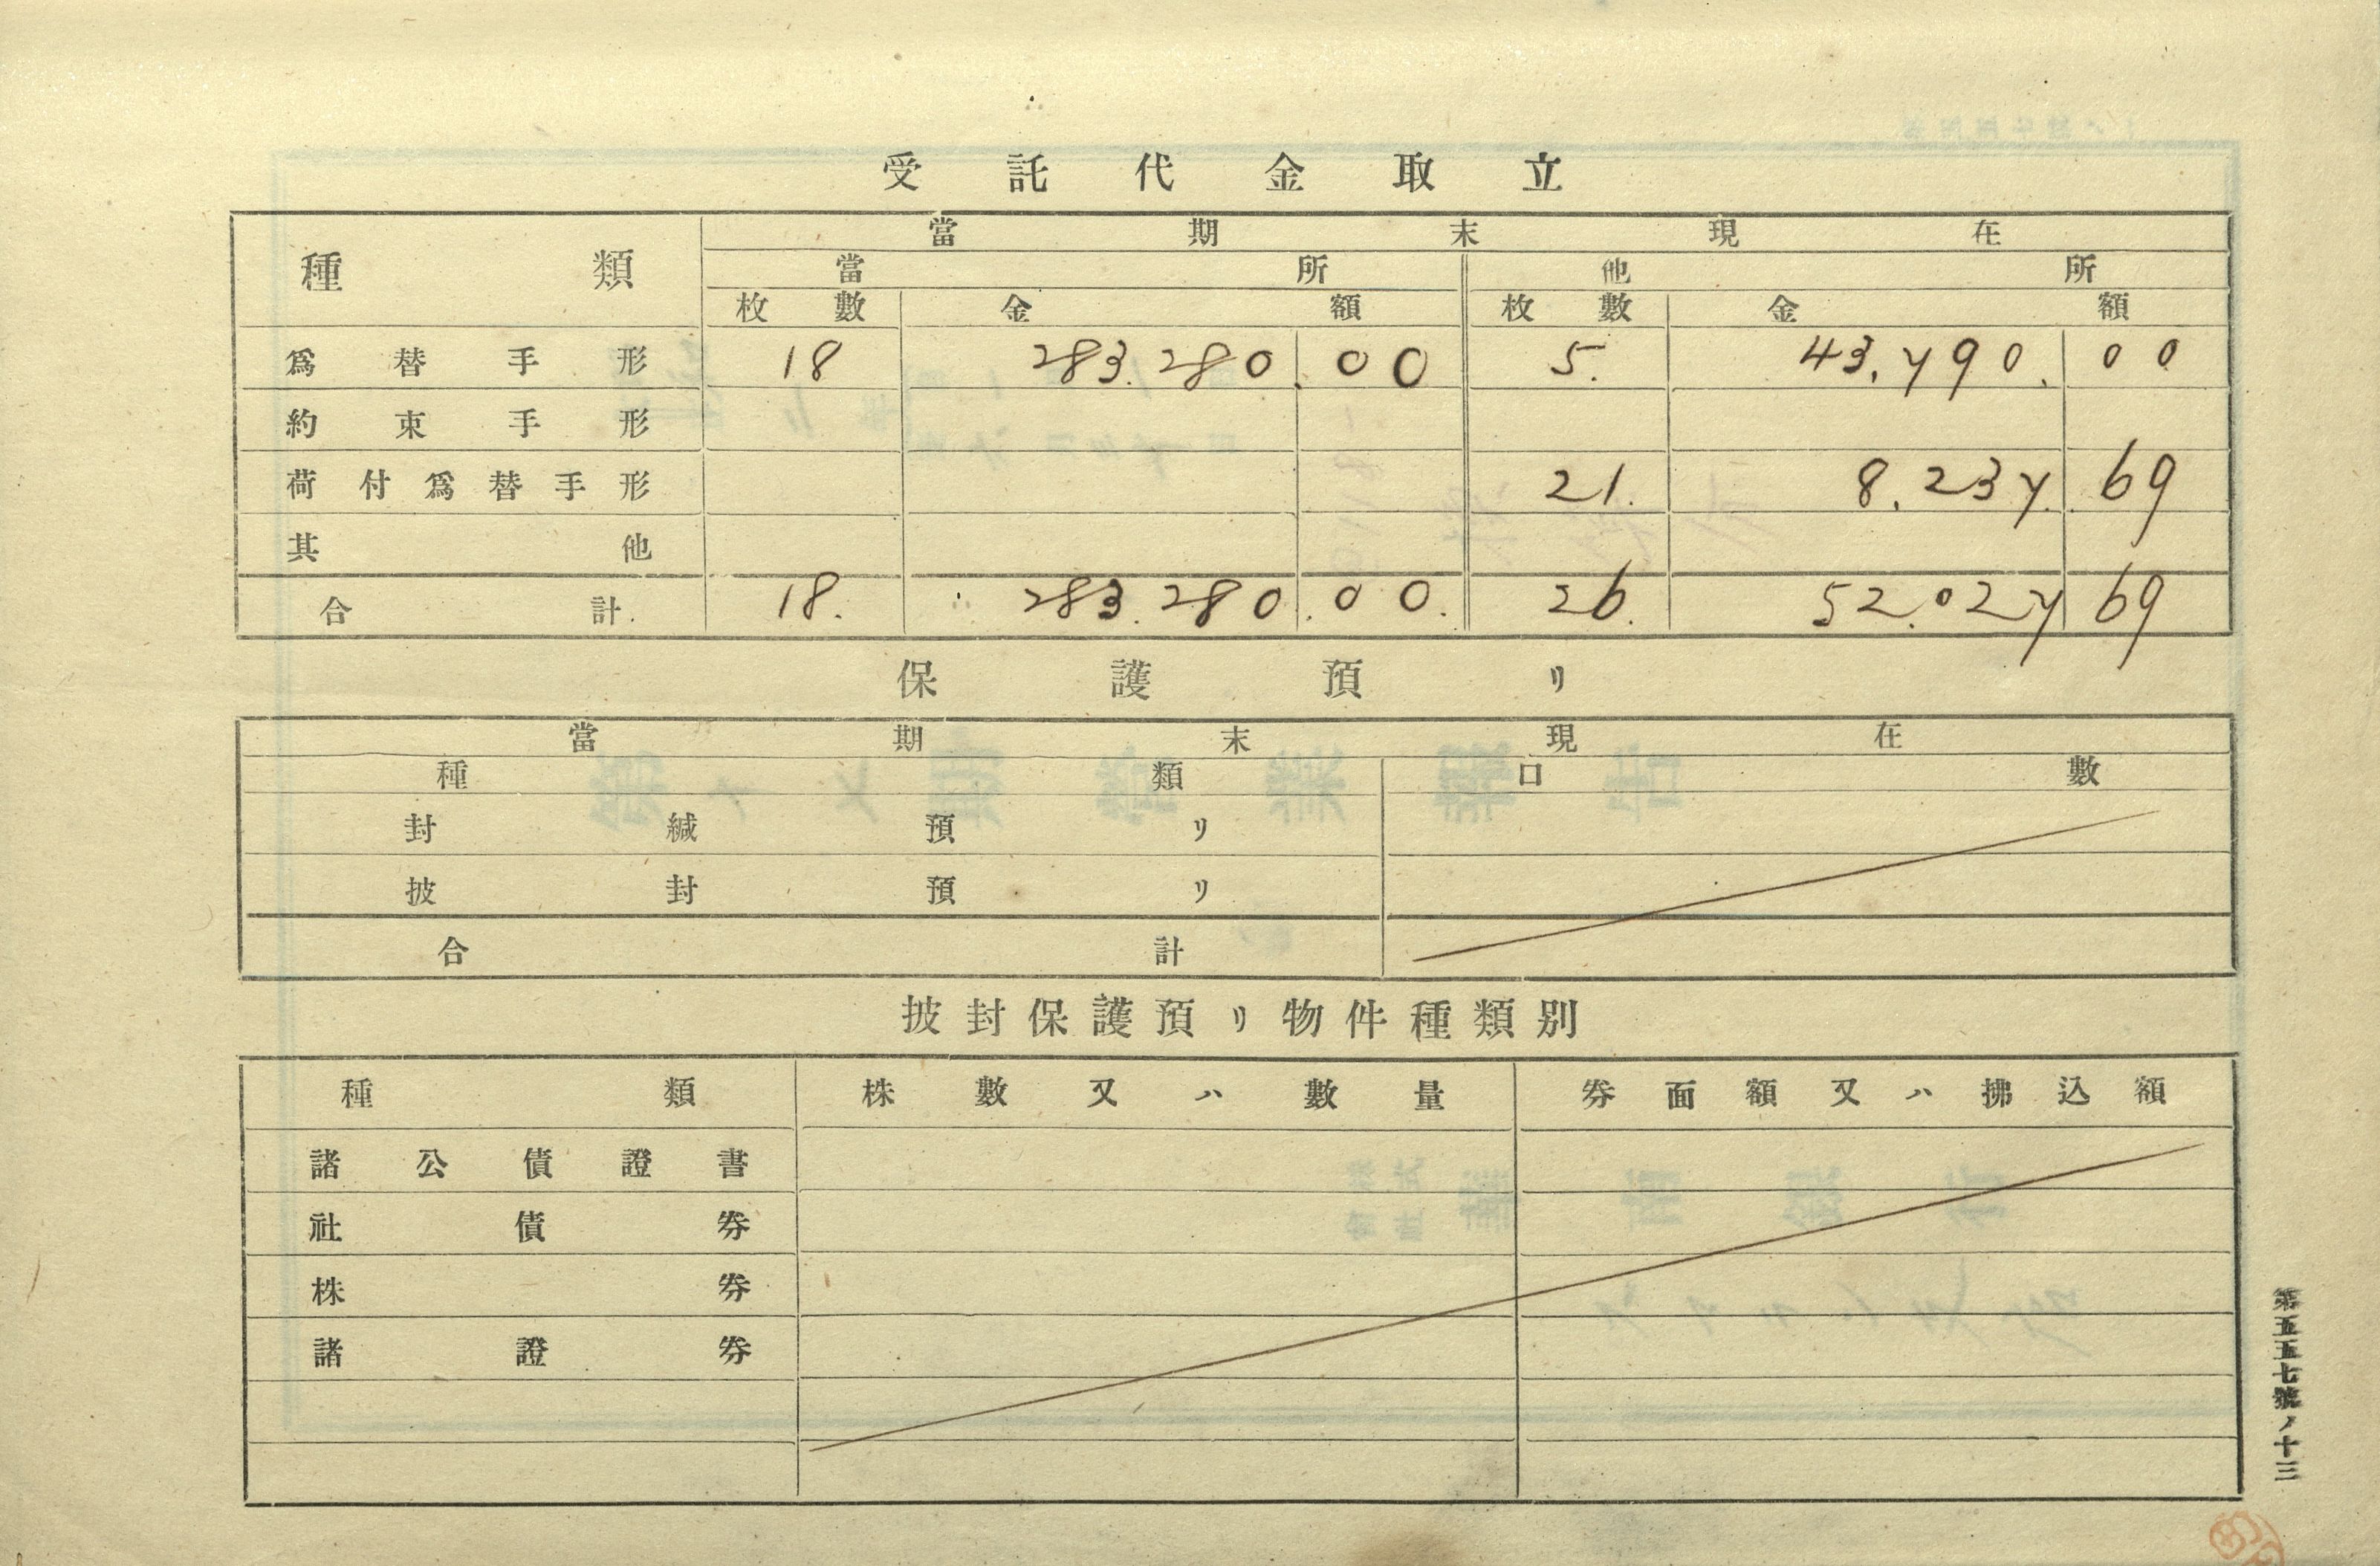 受託代金取立
種類 當期末現在
當所 他所
枚數 金額 枚數 金額
爲替手形 18 283.280.00 5. 43,790.00
約束手形
荷付爲替手形 21. 8.237.69
其他
合計 18. 283.280.00. 26. 52.027 69
保護預リ
當期末現在
種類 口數
封緘預リ
披封預リ
合計
披封保護預リ物件種類別
種類 株數又ハ數量 券面額又ハ拂込額
諸公債證書
社債券
株券
諸證券
第五五七號ノ十三